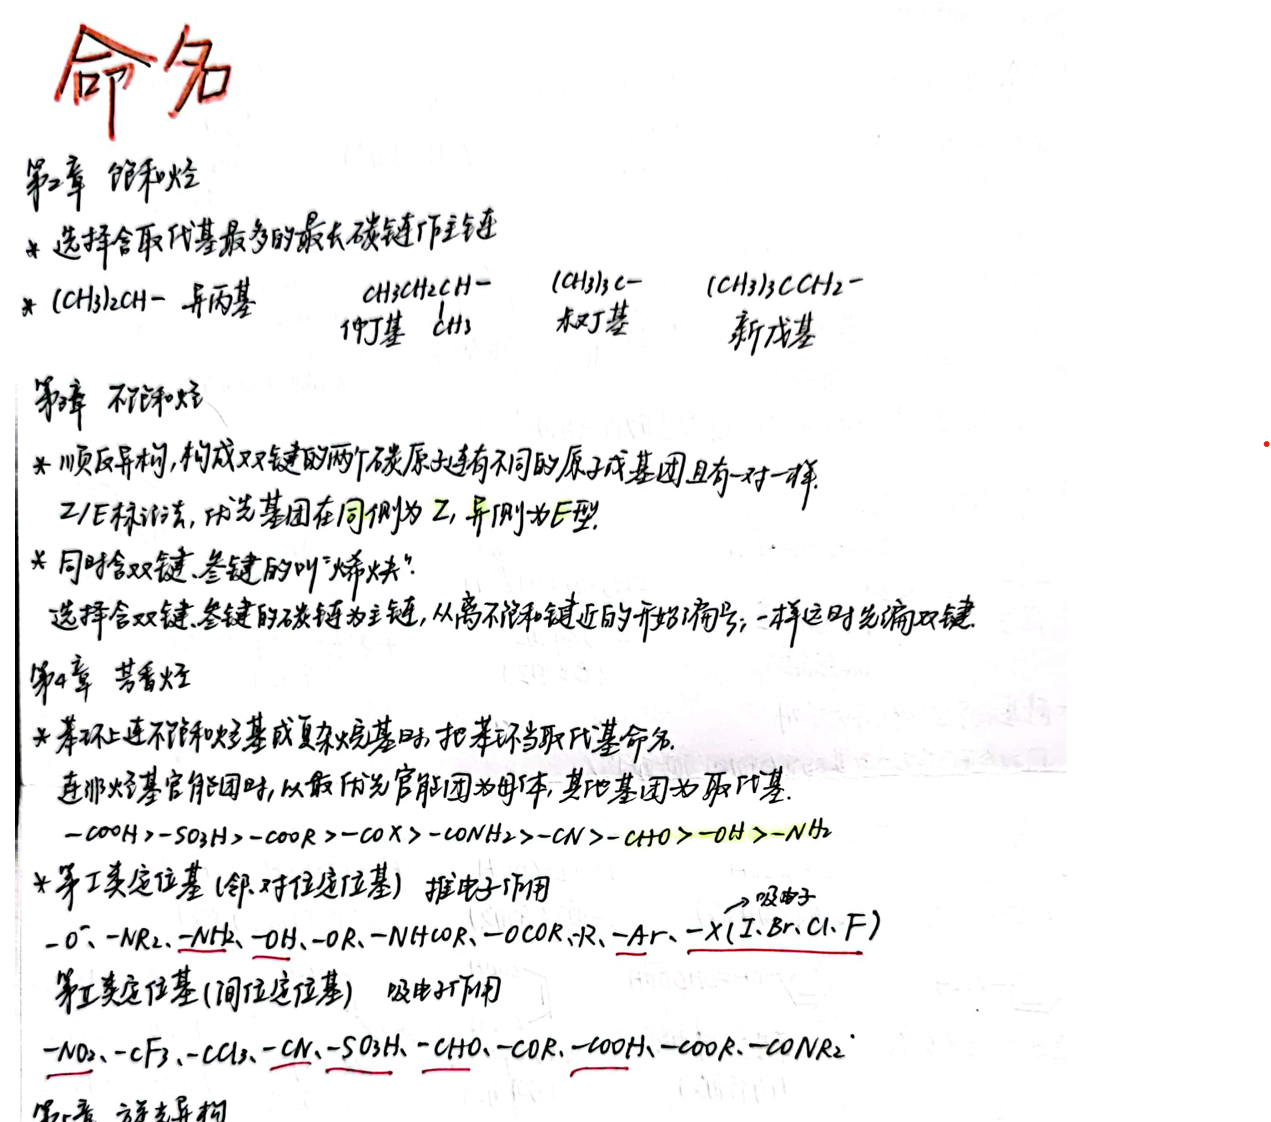 命名
第2章 饱和烃
* 选择含取代基最多的最长碳链作主链
* (CH3)2CH- 异丙基 CH3CH2CH- (CH3)3C- (CH3)3CCH2-
仲丁基 CH3 叔丁基 新戊基
第3章 不饱和烃
* 顺反异构,构成双键的两个碳原子连有不同的原子或基团且有一对一样.
Z/E标记法,优先基团在同侧为Z,异侧为E型.
* 同时含双键、叁键的叫"烯炔".
选择含双键、叁键的碳链为主链,从离不饱和键近的开始编号;一样远时先编双键.
第4章 芳香烃
* 苯环上连不饱和烃基或复杂烷基时,把苯环当取代基命名.
连非烃基官能团时,以最优先官能团为母体,其他基团为取代基.
-COOH>-SO3H>-COOR>-COX>-CONH2>-CN>-CHO>-OH>-NH2
* 第I类定位基(邻、对位定位基) 推电子作用
→吸电子
-O⁻、-NR2、-NH2、-OH、-OR、-NHCOR、-OCOR、-R、-Ar、-X(I、Br、Cl、F)
第II类定位基(间位定位基) 吸电子作用
-NO2、-CF3、-CCl3、-CN、-SO3H、-CHO、-COR、-COOH、-COOR、-CONR2
第5章 旋光异构